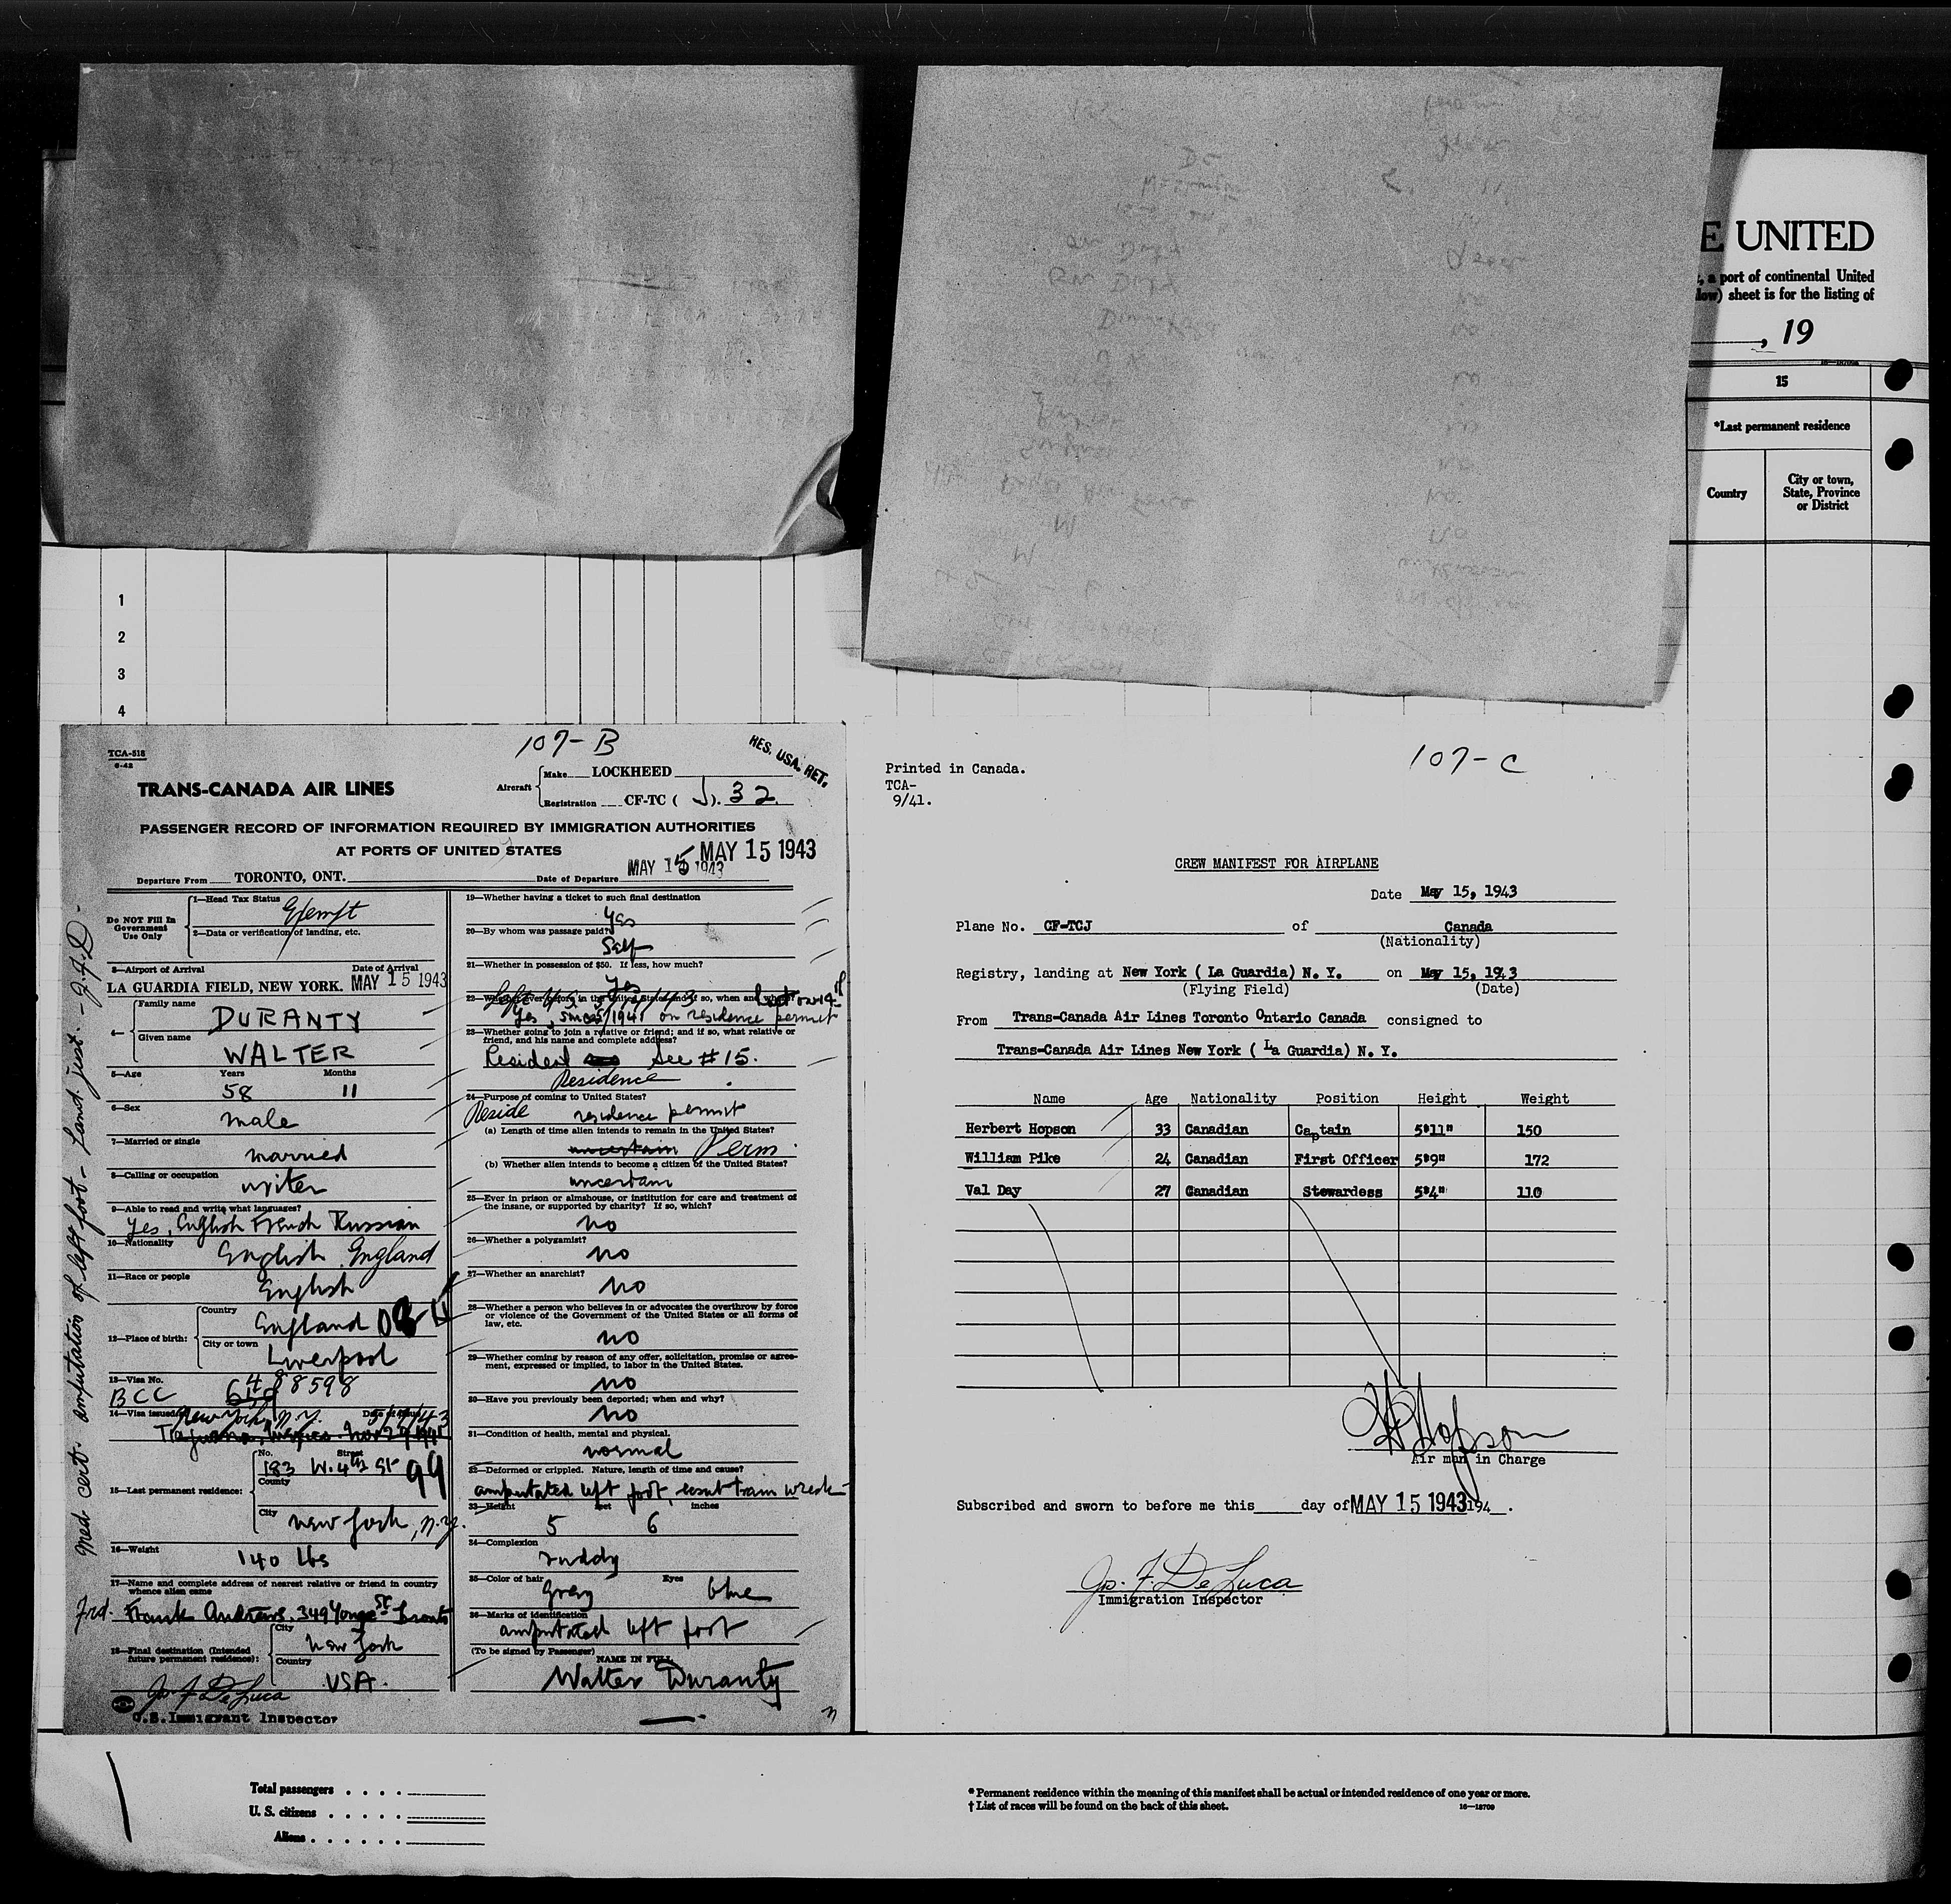 E UNITED
, a port of continental United
low) sheet is for the listing of
, 19
15
*Last permanent residence
Country
City or town, State, Province or District
1
2
3
4
107-B
RES. USA. RET.
TCA-518
6-42
TRANS-CANADA AIR LINES
Aircraft
Make LOCKHEED
Registration CF-TC ( J ). 32
PASSENGER RECORD OF INFORMATION REQUIRED BY IMMIGRATION AUTHORITIES
AT PORTS OF UNITED STATES
MAY 15 1943
MAY 15 1943
Departure From TORONTO, ONT. Date of Departure
Do NOT Fill In Government Use Only
1—Head Tax Status Exempt
2—Data or verification of landing, etc.
3—Airport of Arrival Date of Arrival
LA GUARDIA FIELD, NEW YORK. MAY 15 1943
4— Family name DURANTY
Given name WALTER
5—Age Years 58 Months 11
6—Sex male
7—Married or single married
8—Calling or occupation writer
9—Able to read and write what languages?
Yes, English French Russian
10—Nationality English, England
11—Race or people English
12—Place of birth: Country England
City or town Liverpool
13—Visa No.
BCC 6488598
14—Visa issued New York, N.Y. 5/7/43
Tijuana, Mexico. Nov 29 1941
15—Last permanent residence:
No. Street
183 W. 4th St 99
County
City New York, N.Y.
16—Weight 140 lbs
17—Name and complete address of nearest relative or friend in country whence alien came
Frd. Frank Andrews. 349 Yonge St Toronto
18—Final destination (Intended future permanent residence):
City New York
Country USA.
Jo. F. De Luca
U.S. Immigrant Inspector
Med cert. amputation of left foot - Land just. - J.F.D.
19—Whether having a ticket to such final destination
Yes
20—By whom was passage paid?
Self
21—Whether in possession of $50. If less, how much?
Yes
22—Whether ever before in the United States and if so, when and where?
Yes, since 1941 on residence permit
23—Whether going to join a relative or friend; and if so, what relative or friend, and his name and complete address?
Resident See #15.
Residence
24—Purpose of coming to United States?
Reside residence permit
(a) Length of time alien intends to remain in the United States?
uncertain Perm
(b) Whether alien intends to become a citizen of the United States?
uncertain
25—Ever in prison or almshouse, or institution for care and treatment of the insane, or supported by charity? If so, which?
no
26—Whether a polygamist?
no
27—Whether an anarchist?
no
28—Whether a person who believes in or advocates the overthrow by force or violence of the Government of the United States or all forms of law, etc.
no
29—Whether coming by reason of any offer, solicitation, promise or agreement, expressed or implied, to labor in the United States.
no
30—Have you previously been deported; when and why?
no
31—Condition of health, mental and physical.
normal
32—Deformed or crippled. Nature, length of time and cause?
amputated left foot, result train wreck
33—Height feet inches
5 6
34—Complexion
ruddy
35—Color of hair Eyes
Grey blue
36—Marks of identification
amputated left foot
(To be signed by Passenger) NAME IN FULL
Walter Duranty
107-C
Printed in Canada.
TCA-
9/41.
CREW MANIFEST FOR AIRPLANE
Date May 15, 1943
Plane No. CF-TCJ of Canada
(Nationality)
Registry, landing at New York ( La Guardia) N. Y. on May 15, 1943
(Flying Field) (Date)
From Trans-Canada Air Lines Toronto Ontario Canada consigned to
Trans-Canada Air Lines New York ( La Guardia) N. Y.
Name Age Nationality Position Height Weight
Herbert Hopson 33 Canadian Captain 5'11" 150
William Pike 24 Canadian First Officer 5'9" 172
Val Day 27 Canadian Stewardess 5'4" 110
H Hopson
Air man in Charge
Subscribed and sworn to before me this day of MAY 15 1943 194 .
Jo. F. De Luca
Immigration Inspector
Total passengers . . . .
U. S. citizens . . . . .
Aliens . . . . . .
* Permanent residence within the meaning of this manifest shall be actual or intended residence of one year or more.
† List of races will be found on the back of this sheet.
16—18709